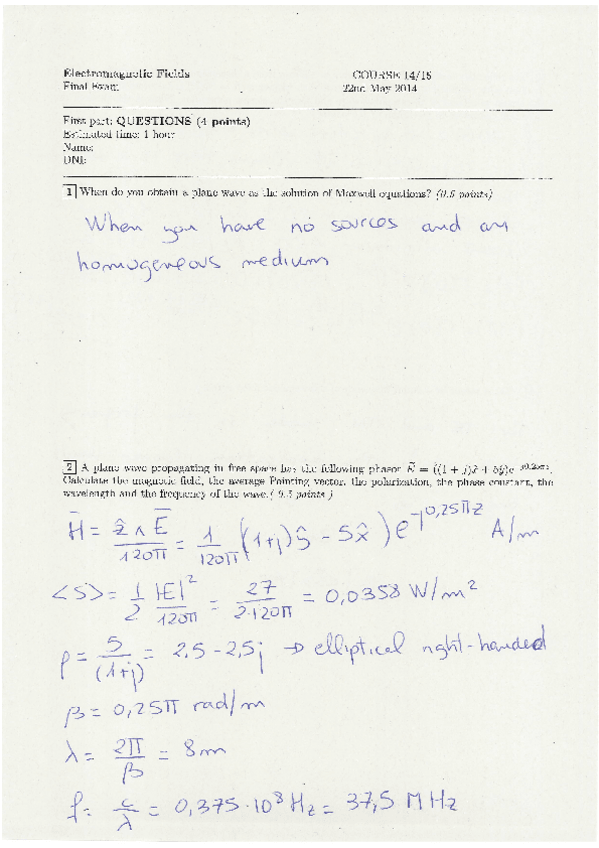 Electromagnetic Fields COURSE 14/15
Final Exam 22nd May 2014
First part: QUESTIONS (4 points)
Estimated time: 1 hour
Name:
DNI:
1 When do you obtain a plane wave as the solution of Maxwell equations? (0.5 points)
When you have no sources and an
homogeneous medium
2 A plane wave propagating in free space has the following phasor Ē = ((1 + j)x̂ + 5ŷ)e
Calculate the magnetic field, the average Pointing vector, the polarization, the phase constant, the
wavelength and the frequency of the wave.( points )
H̄ = ẑ ∧ Ē / 120π = 1/120π ((1+j)ŷ - 5x̂) e^-j0,25πz A/m
<S> = 1/2 |E|²/120π = 27/2·120π = 0,0358 W/m²
ρ = 5/(1+j) = 2,5 - 2,5j → elliptical right-handed
β = 0,25π rad/m
λ = 2π/β = 8m
f = c/λ = 0,375·10⁸ Hz = 37,5 MHz